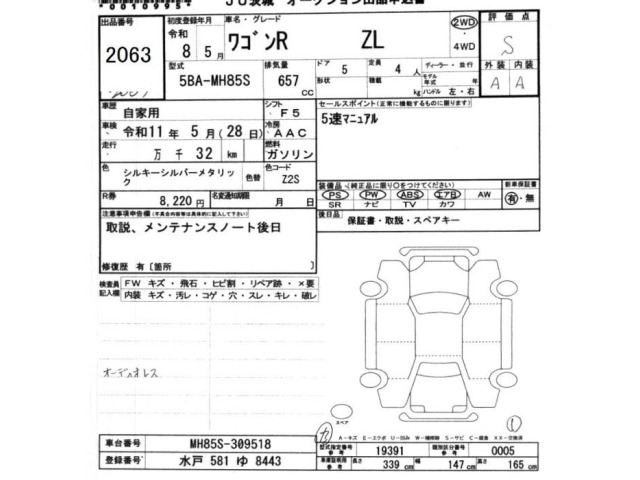 00109954 JU茨城 オークション出品申込書
出品番号 初度登録年月 車名・グレード 評価点
2063 令和 8年 5月 ワゴンR ZL 2WD・4WD S
型式 5BA-MH85S 排気量 657 cc
ドア 5 形状 定員 4 人 積載 kg
ディーラー・並行 モデル年式 年 ハンドル 左・右
外装 内装
A A
車歴 自家用 シフト F5
車検 令和11年 5月(28日) 冷房 AAC
走行 万 千 32 km 燃料 ガソリン
色 シルキーシルバーメタリック 色替 色コード Z2S
R券 8,220円 名変通知期限 月 日
セールスポイント(正常に機能するものに限ります)
5速マニュアル
装備品(純正品に限り○をつけてください) 新車保証書
PS PW ABS エアB AW 有・無
SR ナビ TV カワ
後日品 保証書・取説・スペアキー
注意事項申告欄(不具合内容等は具体的に記入して下さい)
取説、メンテナンスノート後日
修復歴 有〔箇所 〕
検査員記入欄 FW キズ・飛石・ヒビ割・リペア跡・×要
内装 キズ・汚レ・コゲ・穴・スレ・キレ・破レ
オーディオレス
スペア
カ
A-キズ E-エクボ U-凹み W-補修跡 S-サビ C-腐食 XX-交換済
車台番号 MH85S-309518
登録番号 水戸 581 ゆ 8443
型式指定番号 参考 19391 類別区分番号 参考 0005
車庫証明用 参考 長さ 339 cm 幅 147 cm 高さ 165 cm